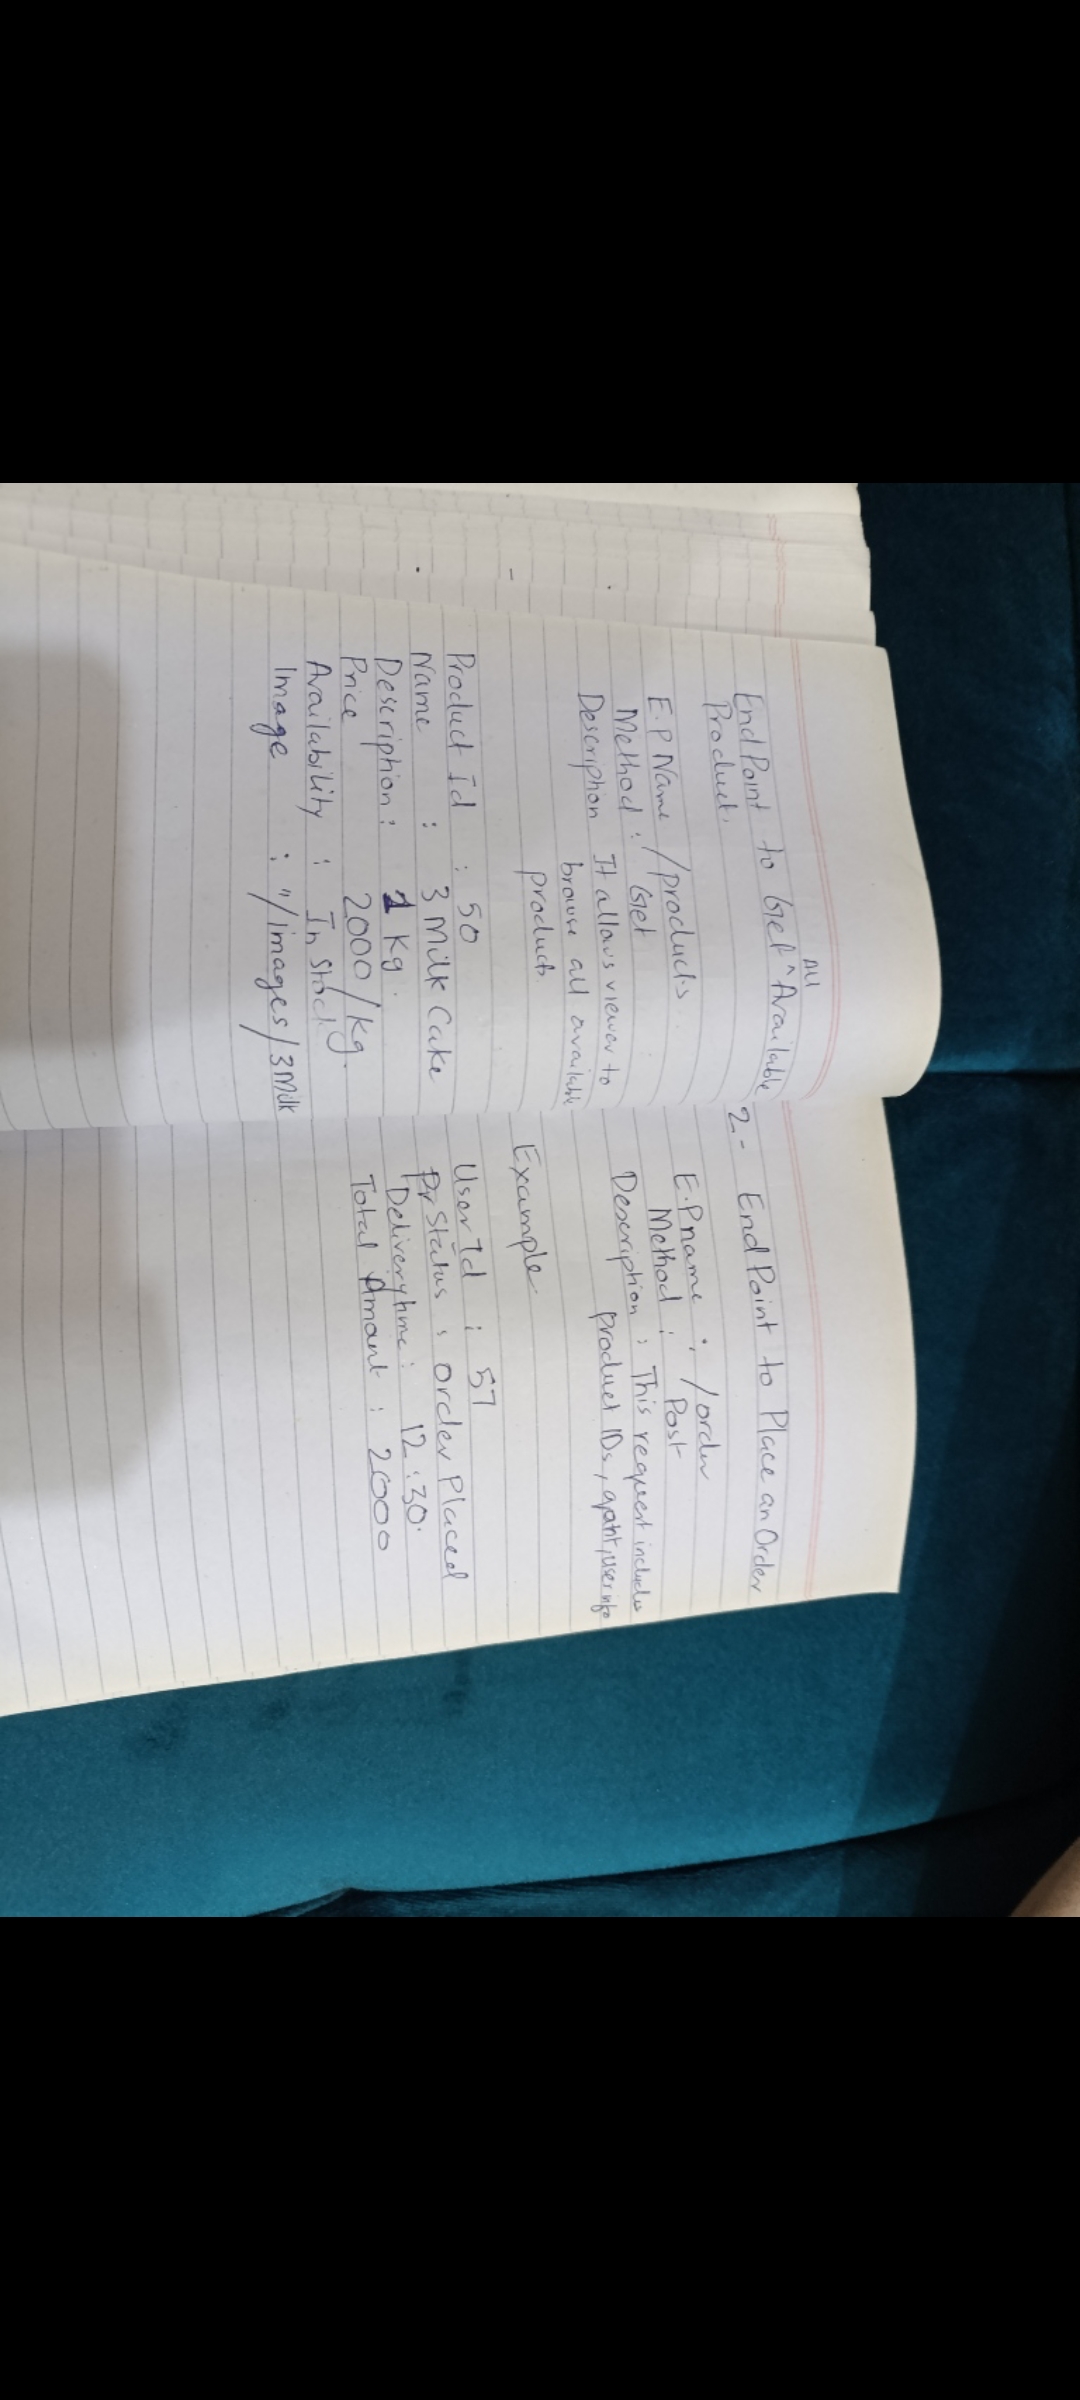 All
EndPoint to Get ^ Available
Product.
E.P Name /products
Method : Get
Description It allows viewer to
browse all available
products
Product Id : 50
Name : 3 Milk Cake
Description : 1 Kg.
Price 2000/kg.
Availability : In Stock
Image : "/images/3Milk
2- EndPoint to Place an Order
E.P name : /order
Method : Post
Description : This request includes
product IDs, user info
Example
User Id : 57
Status : Order Placed
Delivery time : 12:30.
Total Amount : 2000